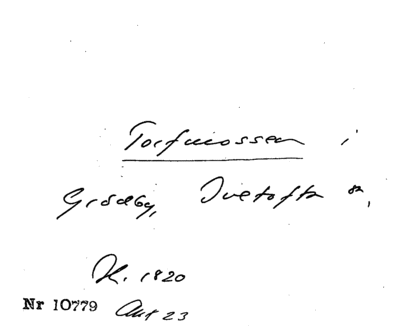 Torfmossen i
Grödby, Ivetofta sn,
K. 1820
Nr 10779 Aut 23